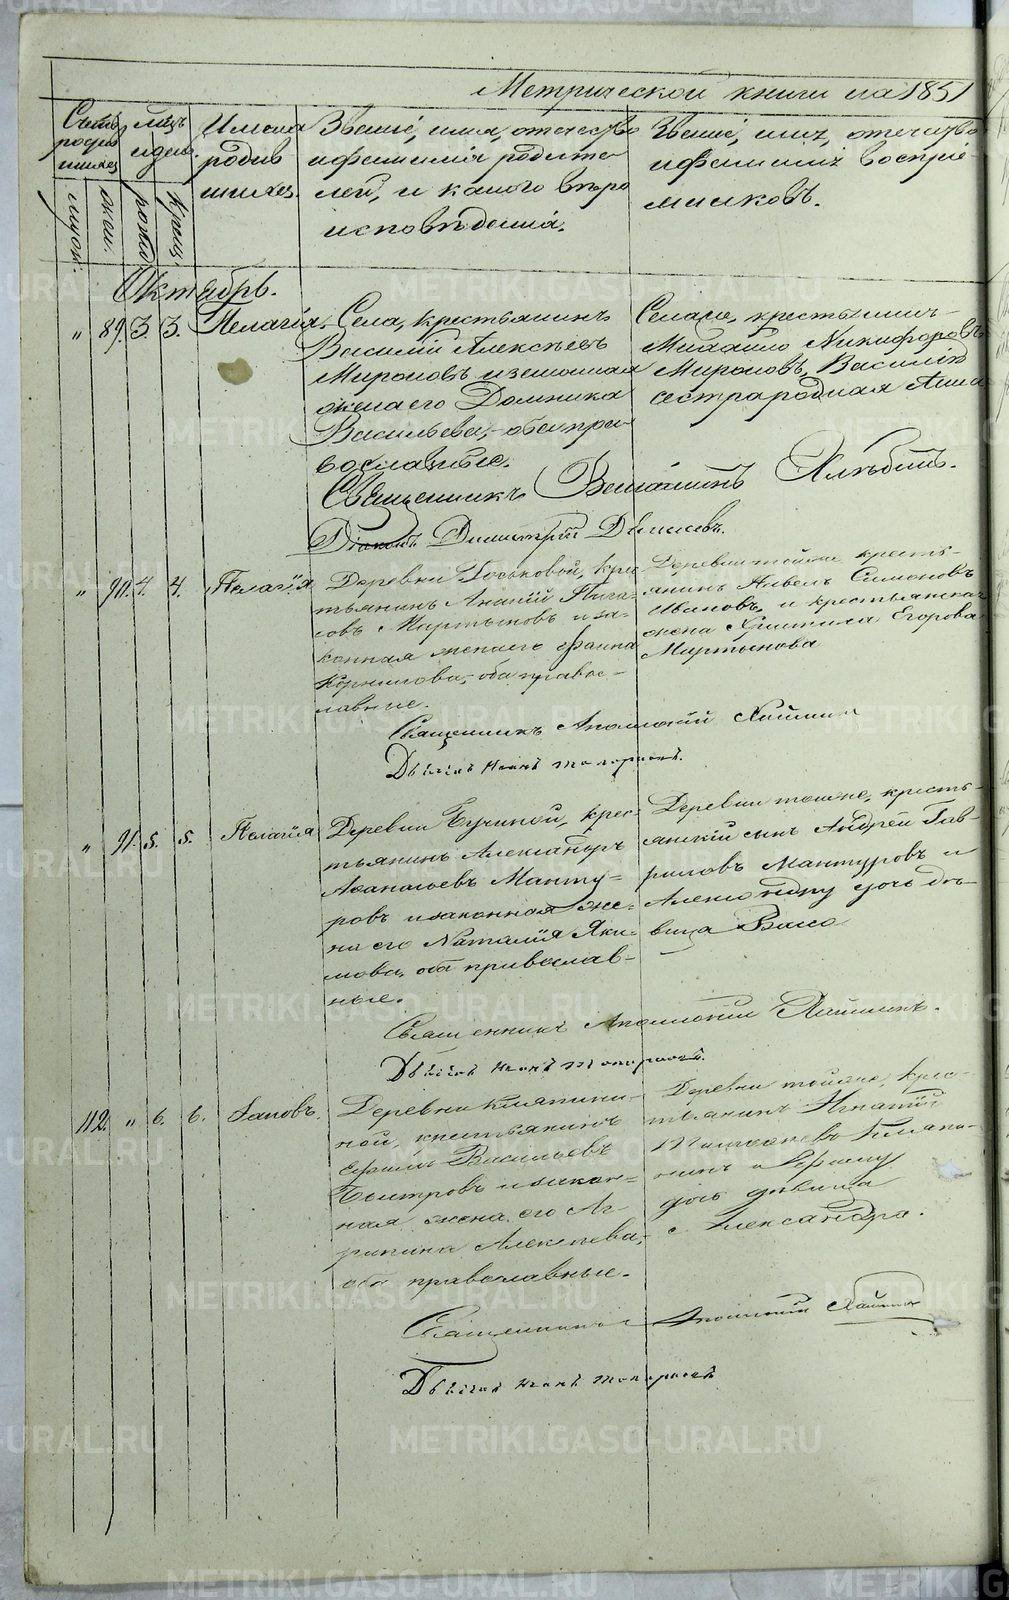 Метрической книги на 1851
Счетъ родив шихся
мѣсяцъ и день
Имена родив шихся.
Званіе, имя, отечество и фамилія родите лей, и какого вѣро исповѣданія.
Званіе, имя, отечество и фамилія воспріе мниковъ.
мужск.
женск.
рожд.
крещ.
Октябрь.
" 89. 3. 3. Пелагія.
Села, крестьянинъ
Василій Алексѣевъ
Мироновъ и законная
жена его Домника
Васильева, оба пра-
вославные.
Села же, крестьянинъ
Михайло Никифоровъ
Мироновъ, Василія
сестра родная Анна
Священникъ Веніаминъ
Діаконъ Димитрій
" 90. 4. 4. Пелагія
Деревни крес
тьянинъ
совъ Мартыновъ и за-
конная жена его Фаина
Корнилова, оба правос-
лавные.
Деревни тойже кресть-
янинъ Павелъ Симоновъ
Ивановъ, и крестьянская
жена Христина Егорова
Мартынова
Священникъ Аполлоній
Дьячекъ Иванъ Топорковъ.
" 91. 5. 5. Пелагія
Деревни Бучиной, крес-
тьянинъ Александръ
Афанасьевъ Манту-
ровъ и законная же-
на его Наталія Яки-
мова, оба православ-
ные.
Деревни тоже, кресть-
янскій сынъ Андрей Гав-
риловъ Мантуровъ и
Александру дочь дѣ-
вица Васса
Священникъ Аполлоній
Дьячекъ Иванъ Топорковъ.
112. " 6. 6. Іаковъ.
Деревни
ной, крестьянинъ
Ефимъ Васильевъ
и закон-
ная жена его Аг
рипина Алексѣева,
оба православные.
Деревни тойже, крес-
тьянинъ Игнатій
нинъ и Ефиму
дочь дѣвица
Александра.
Священникъ Аполлоній
Дьячекъ Иванъ Топорковъ
METRIKI.GASO-URAL.RU